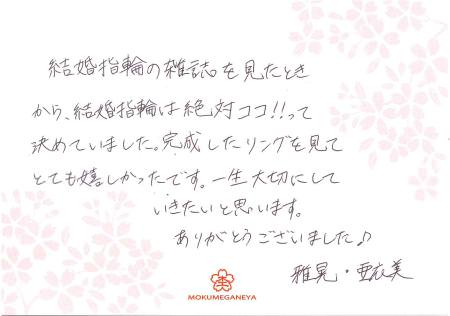 結婚指輪の雑誌を見たとき
から、結婚指輪は絶対ココ!!って
決めていました。完成したリングを見て
とても嬉しかったです。一生大切にして
いきたいと思います。
ありがとうございました♪
雅晃・亜衣美
MOKUMEGANEYA